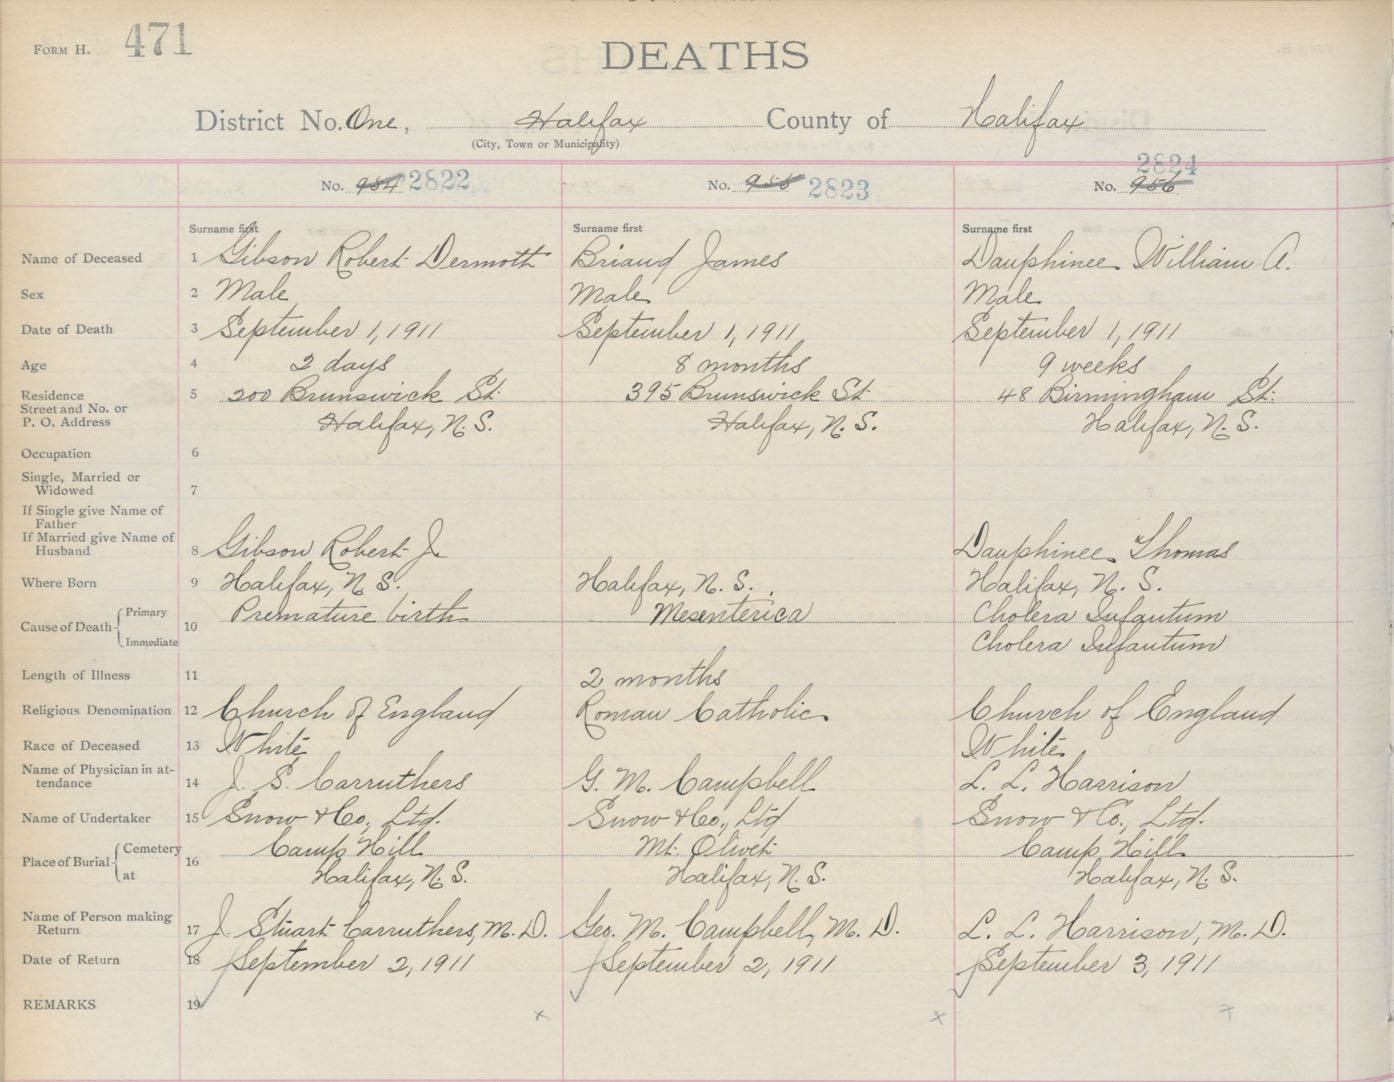 FORM H. 471
DEATHS
District No. One, Halifax County of Halifax
(City, Town or Municipality)
No. 954 2822 No. 955 2823 No. 956 2824
Surname first Surname first Surname first
Name of Deceased 1 Gibson Robert Dermoth Briand James Dauphinee William A.
Sex 2 Male Male Male
Date of Death 3 September 1, 1911 September 1, 1911 September 1, 1911
Age 4 2 days 8 months 9 weeks
Residence 5 200 Brunswick St. 395 Brunswick St 48 Birmingham St.
Street and No. or
P. O. Address Halifax, N. S. Halifax, N. S. Halifax, N. S.
Occupation 6
Single, Married or
Widowed 7
If Single give Name of
Father
If Married give Name of
Husband 8 Gibson Robert J. Dauphinee Thomas
Where Born 9 Halifax, N. S. Halifax, N. S. Halifax, N. S.
Cause of Death Primary 10 Premature birth Mesenterica Cholera Infantum
Immediate Cholera Infantum
Length of Illness 11 2 months
Religious Denomination 12 Church of England Roman Catholic Church of England
Race of Deceased 13 White White
Name of Physician in at-
tendance 14 J. S. Carruthers G. M. Campbell L. L. Harrison
Name of Undertaker 15 Snow & Co., Ltd. Snow & Co., Ltd Snow & Co., Ltd.
Place of Burial Cemetery 16 Camp Hill Mt. Olivet Camp Hill
at Halifax, N. S. Halifax, N. S. Halifax, N. S.
Name of Person making
Return 17 J. Stuart Carruthers, M. D. Geo. M. Campbell, M. D. L. L. Harrison, M. D.
Date of Return 18 September 2, 1911 September 2, 1911 September 3, 1911
REMARKS 19
x x x